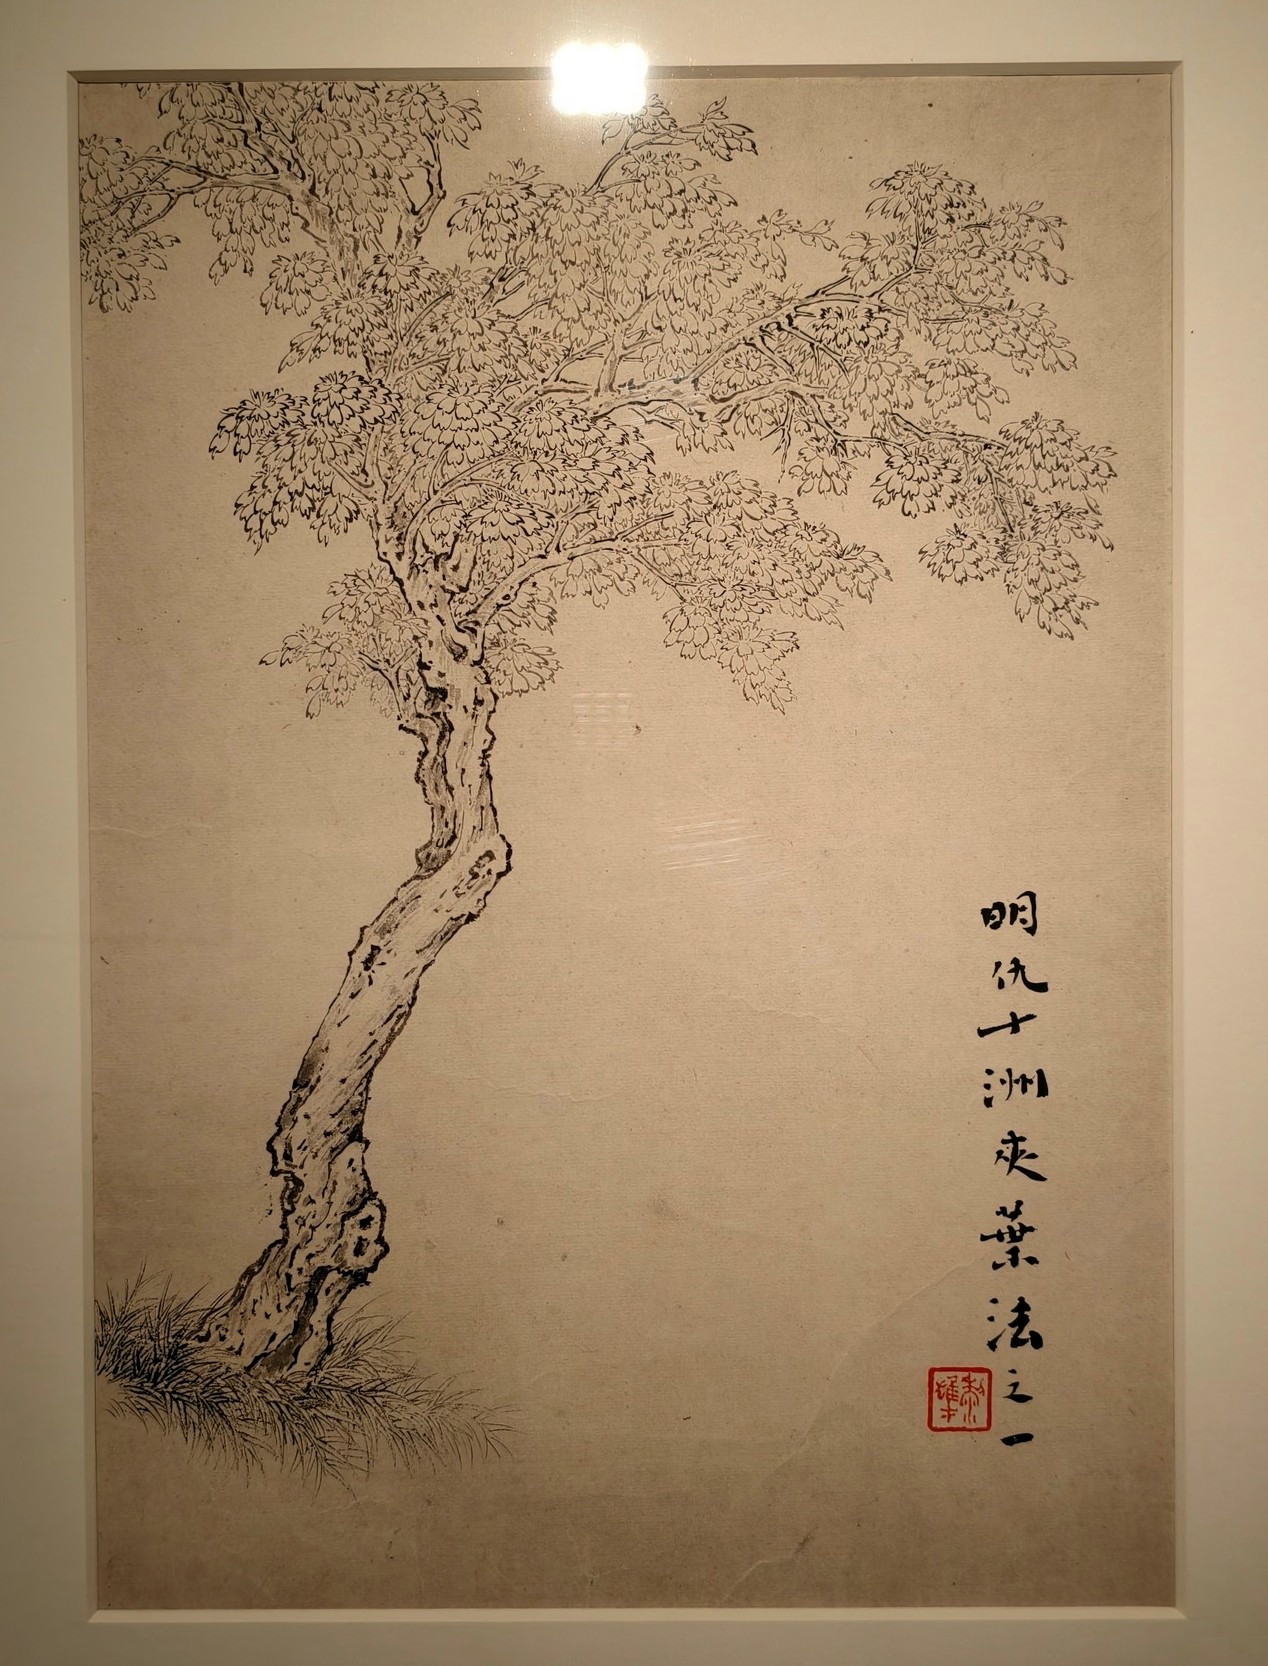 明仇十洲夾葉法之一